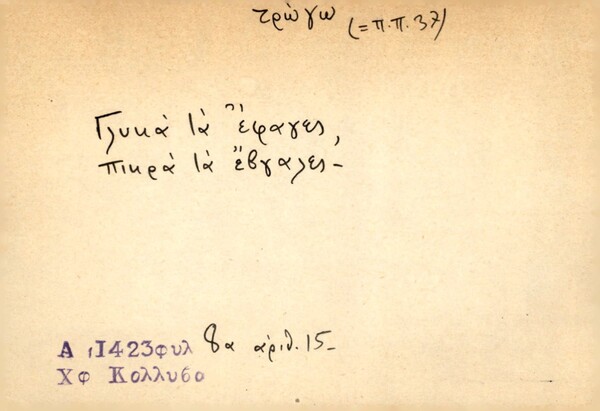 τρώγω (=π.π. 37)
Γλυκὰ τἄφαγες,
πικρὰ τὰ ἔβγαλες –
Α 1423 φυλ 8α ἀριθ. 15 –
Χφ Κολλυβο